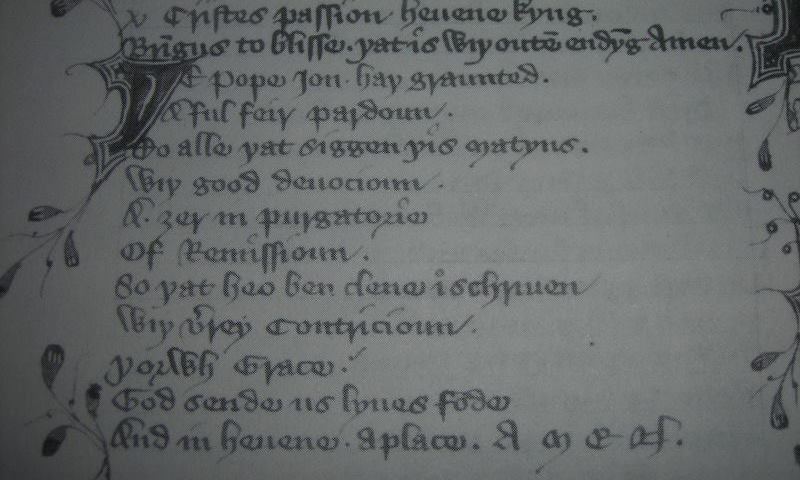 v Cristes passion heuene kyng.
Brīgus to blisse. þat is wiþ outē endyg Amen.
Þe Pope Jon. haþ graunted.
A ful feir pardoun.
To alle þat siggen þis matyns.
Wiþ good deuocioun.
A. ȝer in purgatorie
Of Remissioun.
So þat heo ben clene ischriuen
Wiþ v̄rey Contricioun.
þorwh Grace.
God sende us lyues fode
And in heuene. a place. A M E N.